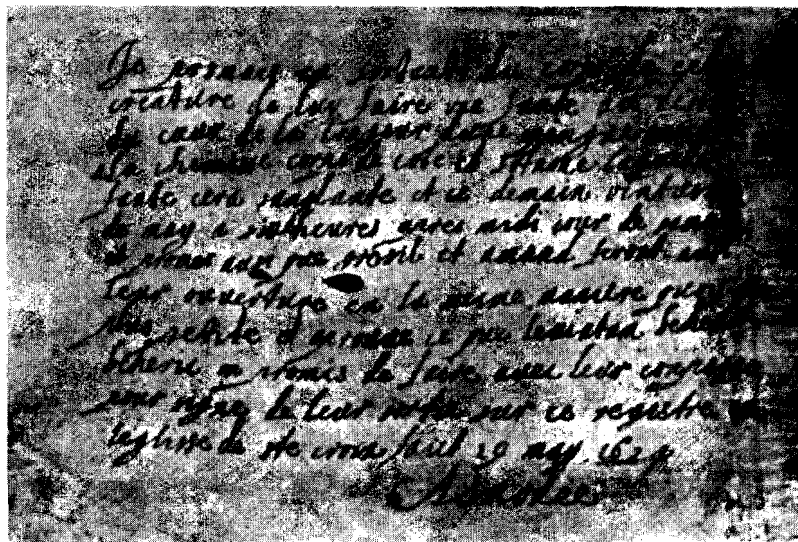 Je promets en sortant du corps de cette
creature de luy faire une fante au
du cœur de la longeur dune
a la chemise corps de cote et
fante sera sanglante et ce demain vintiesme
de may a heures apres midi jour de
et promes aussi que gresil et amand feront aussi
leur ouverture en la mesme maniere
plus petite et aprouve ce que leviatan
beherie promis de faire avec leur compagnon
pour signe de leur sortie sur ce registre en
leglisse de ste croix faict 19 may 1629
Asmodee